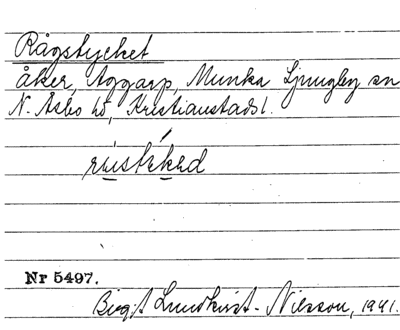 Rågstycket
åker, Aggarp, Munka Ljungby sn
N. Åsbo hd, Kristianstads l.
Nr 5497.
Birgit Lundkvist-Nilsson, 1941.